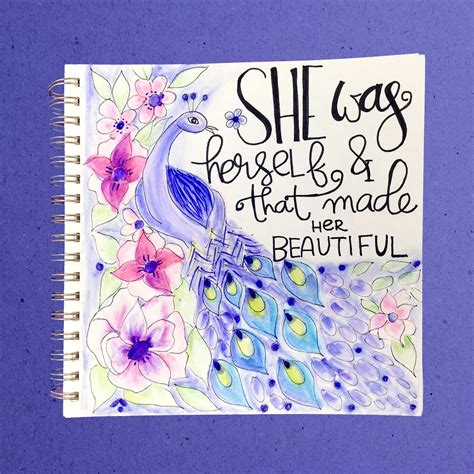 SHE was
herself, &
that made
HER
BEAUTIFUL